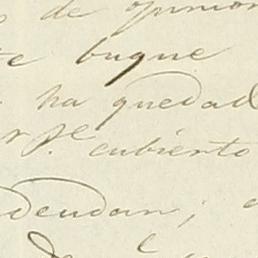 de opinion
te buque
ha quedad
cubierto
deudan; a